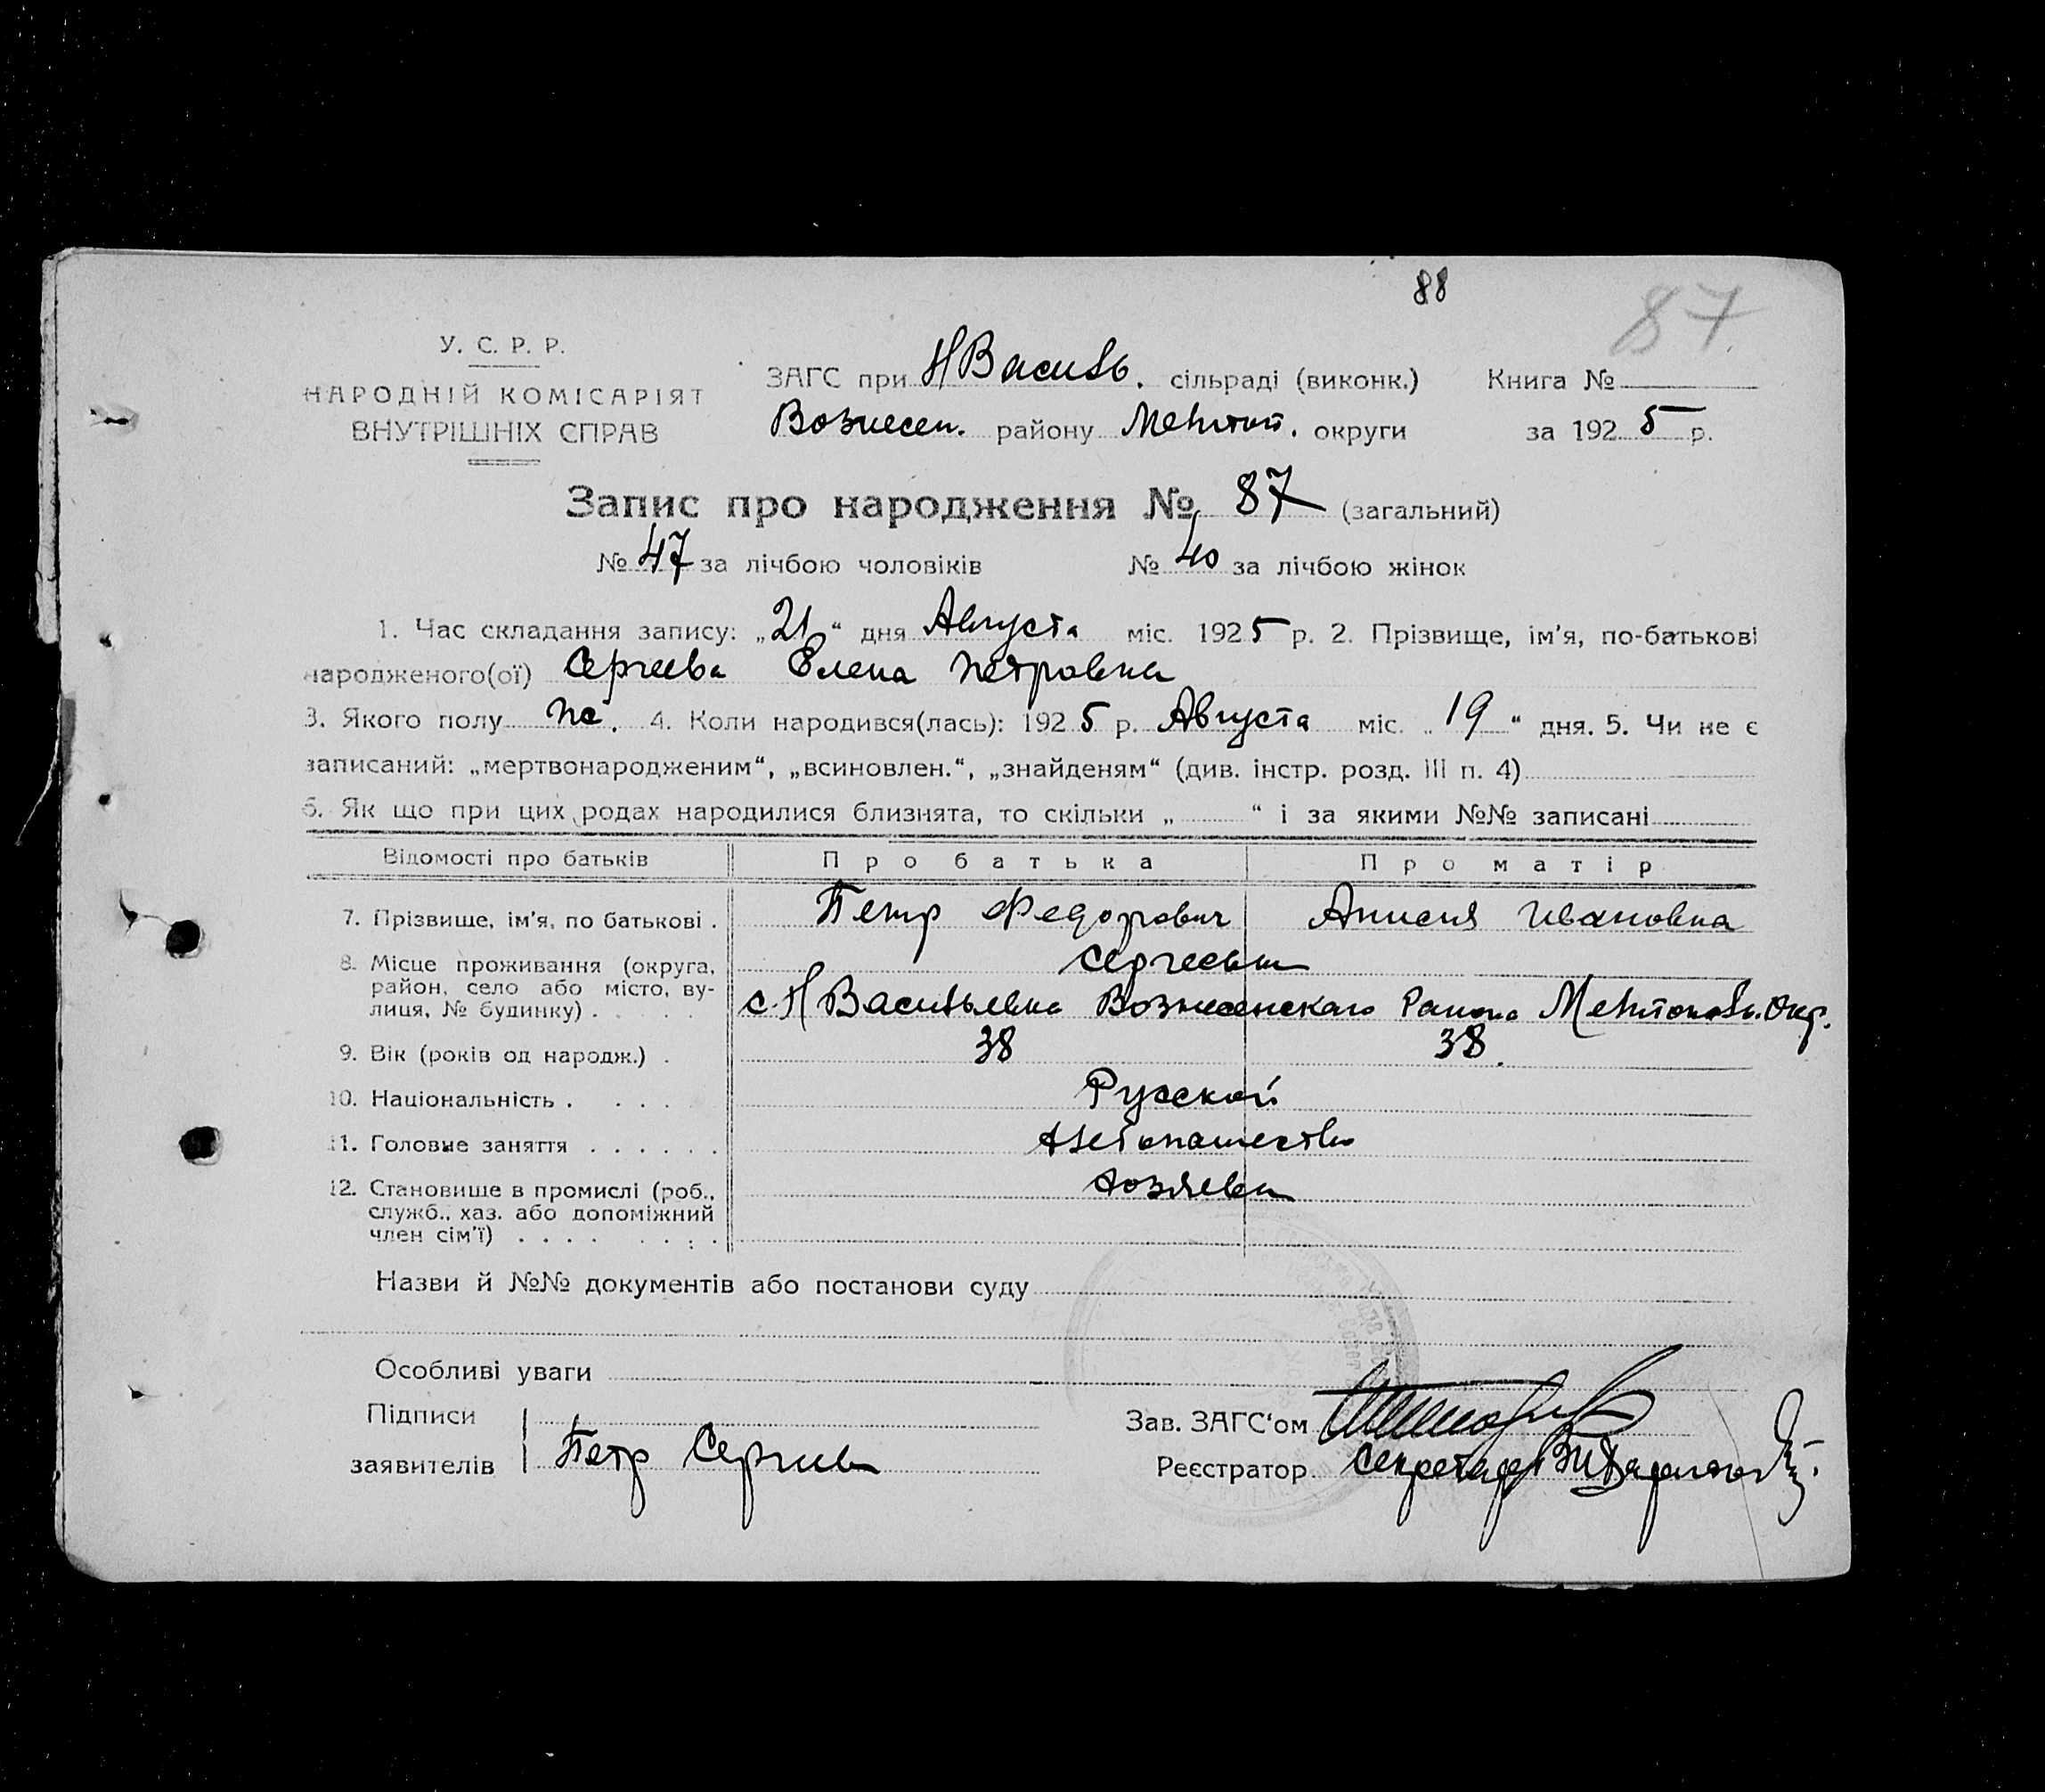 88
87
У. С. Р. Р.
НАРОДНІЙ КОМІСАРІЯТ
ВНУТРІШНІХ СПРАВ
ЗАГС при НВасиль. сільраді (виконк.) Книга №
Вознесен. району Мелітоп. округи за 1925 р.
Запис про народження № 87 (загальний)
№ 47 за лічбою чоловіків № 40 за лічбою жінок
1. Час складання запису: „21“ дня Августа міс. 1925 р. 2. Прізвище, ім'я, по-батькові
народженого(ої) Сергеева Елена Петровна
3. Якого полу 4. Коли народився(лась): 1925 р. Августа міс. „19“ дня. 5. Чи не є
записаний: „мертвонародженим“, „всиновлен.“, „знайденям“ (див. інстр. розд. III п. 4)
6. Як що при цих родах народилися близнята, то скільки „ “ і за якими №№ записані
Відомості про батьків Про батька Про матір
7. Прізвище, ім'я, по батькові . Петр Федорович Анисия Ивановна
Сергеевы
8. Місце проживання (округа,
район, село або місто, ву-
лиця, № будинку) . с. НВасильевка Вознесенскаго Района Мелитополь. Окр.
9. Вік (років од народж.) . 38 38.
10. Національність . Русской
11. Головне заняття . Хлебопашество
12. Становище в промислі (роб.,
служб., хаз. або допоміжний
член сім'ї) . Хозяева
Назви й №№ документів або постанови суду
Особливі уваги
Підписи
заявителів Петр Сергеев
Зав. ЗАГС'ом
Реєстратор Секретарь